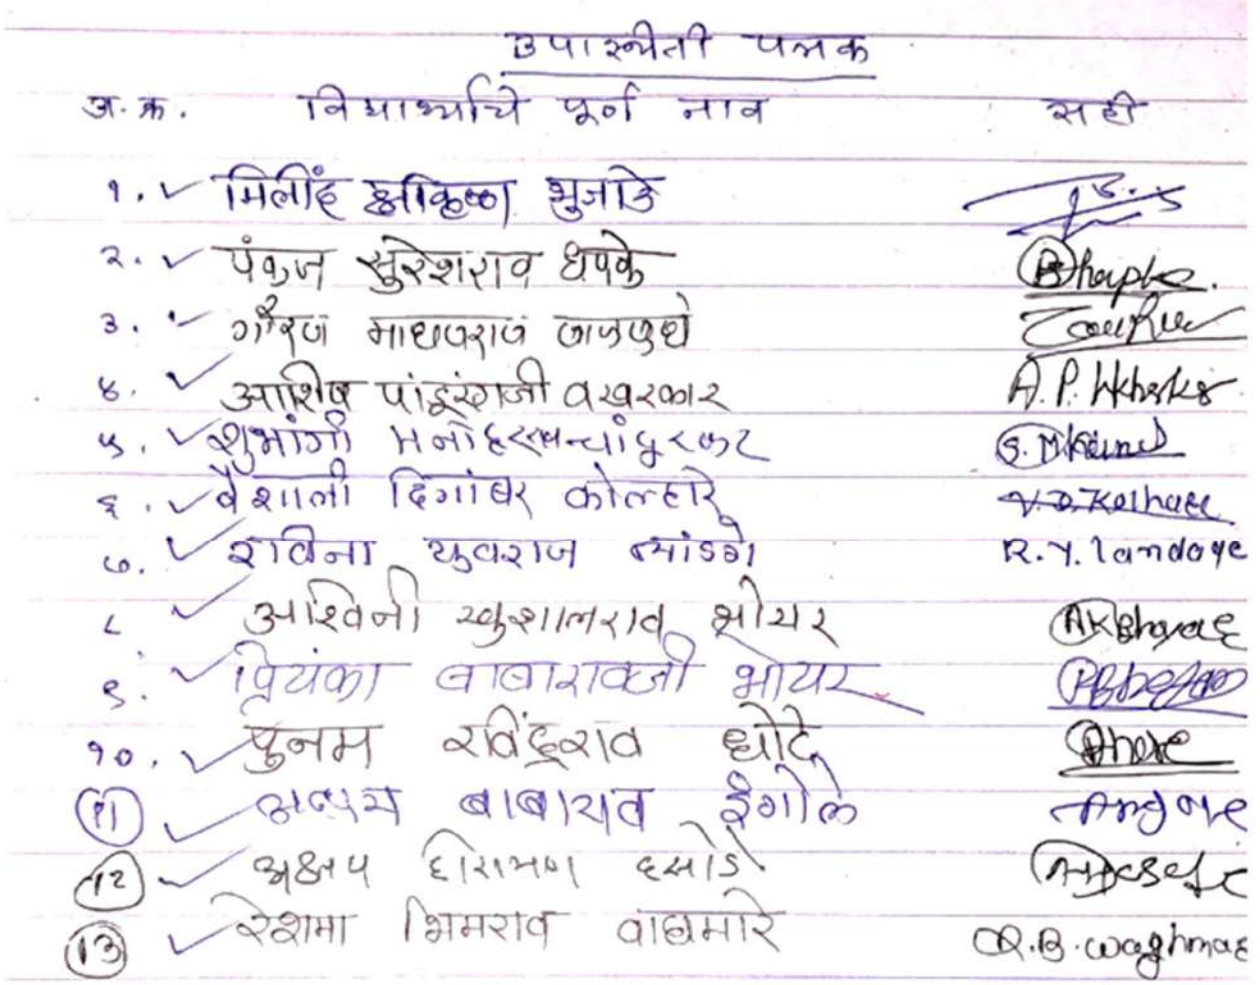 उपास्थीती पत्रक
अ.क्र. विद्यार्थ्याचे पूर्ण नाव सही
१. मिलींद श्रीकृष्णा भुजाडे
२. पंकज सुरेशराव धपके Bhapke
३. गौरव माधवराव
४. आशिष पांडूरंगजी वखरकार A.P. Wkharkar
५. शुभांगी मनोहरराव चांदुरकर
६. वैशाली दिगांबर कोल्हारे V.D. Kolhare
७. राविना युवराज लांडगे R.Y. landage
८ अश्विनी खुशालराव भोयर AKBhoyar
९. प्रियंका बाबारावजी भोयर
१०. पुनम रविंद्रराव धोटे
११ बाबाराव इंगोले
12 अक्षय हीरामण हसोडे
13 रेशमा भिमराव वाघमारे R.B. waghmare